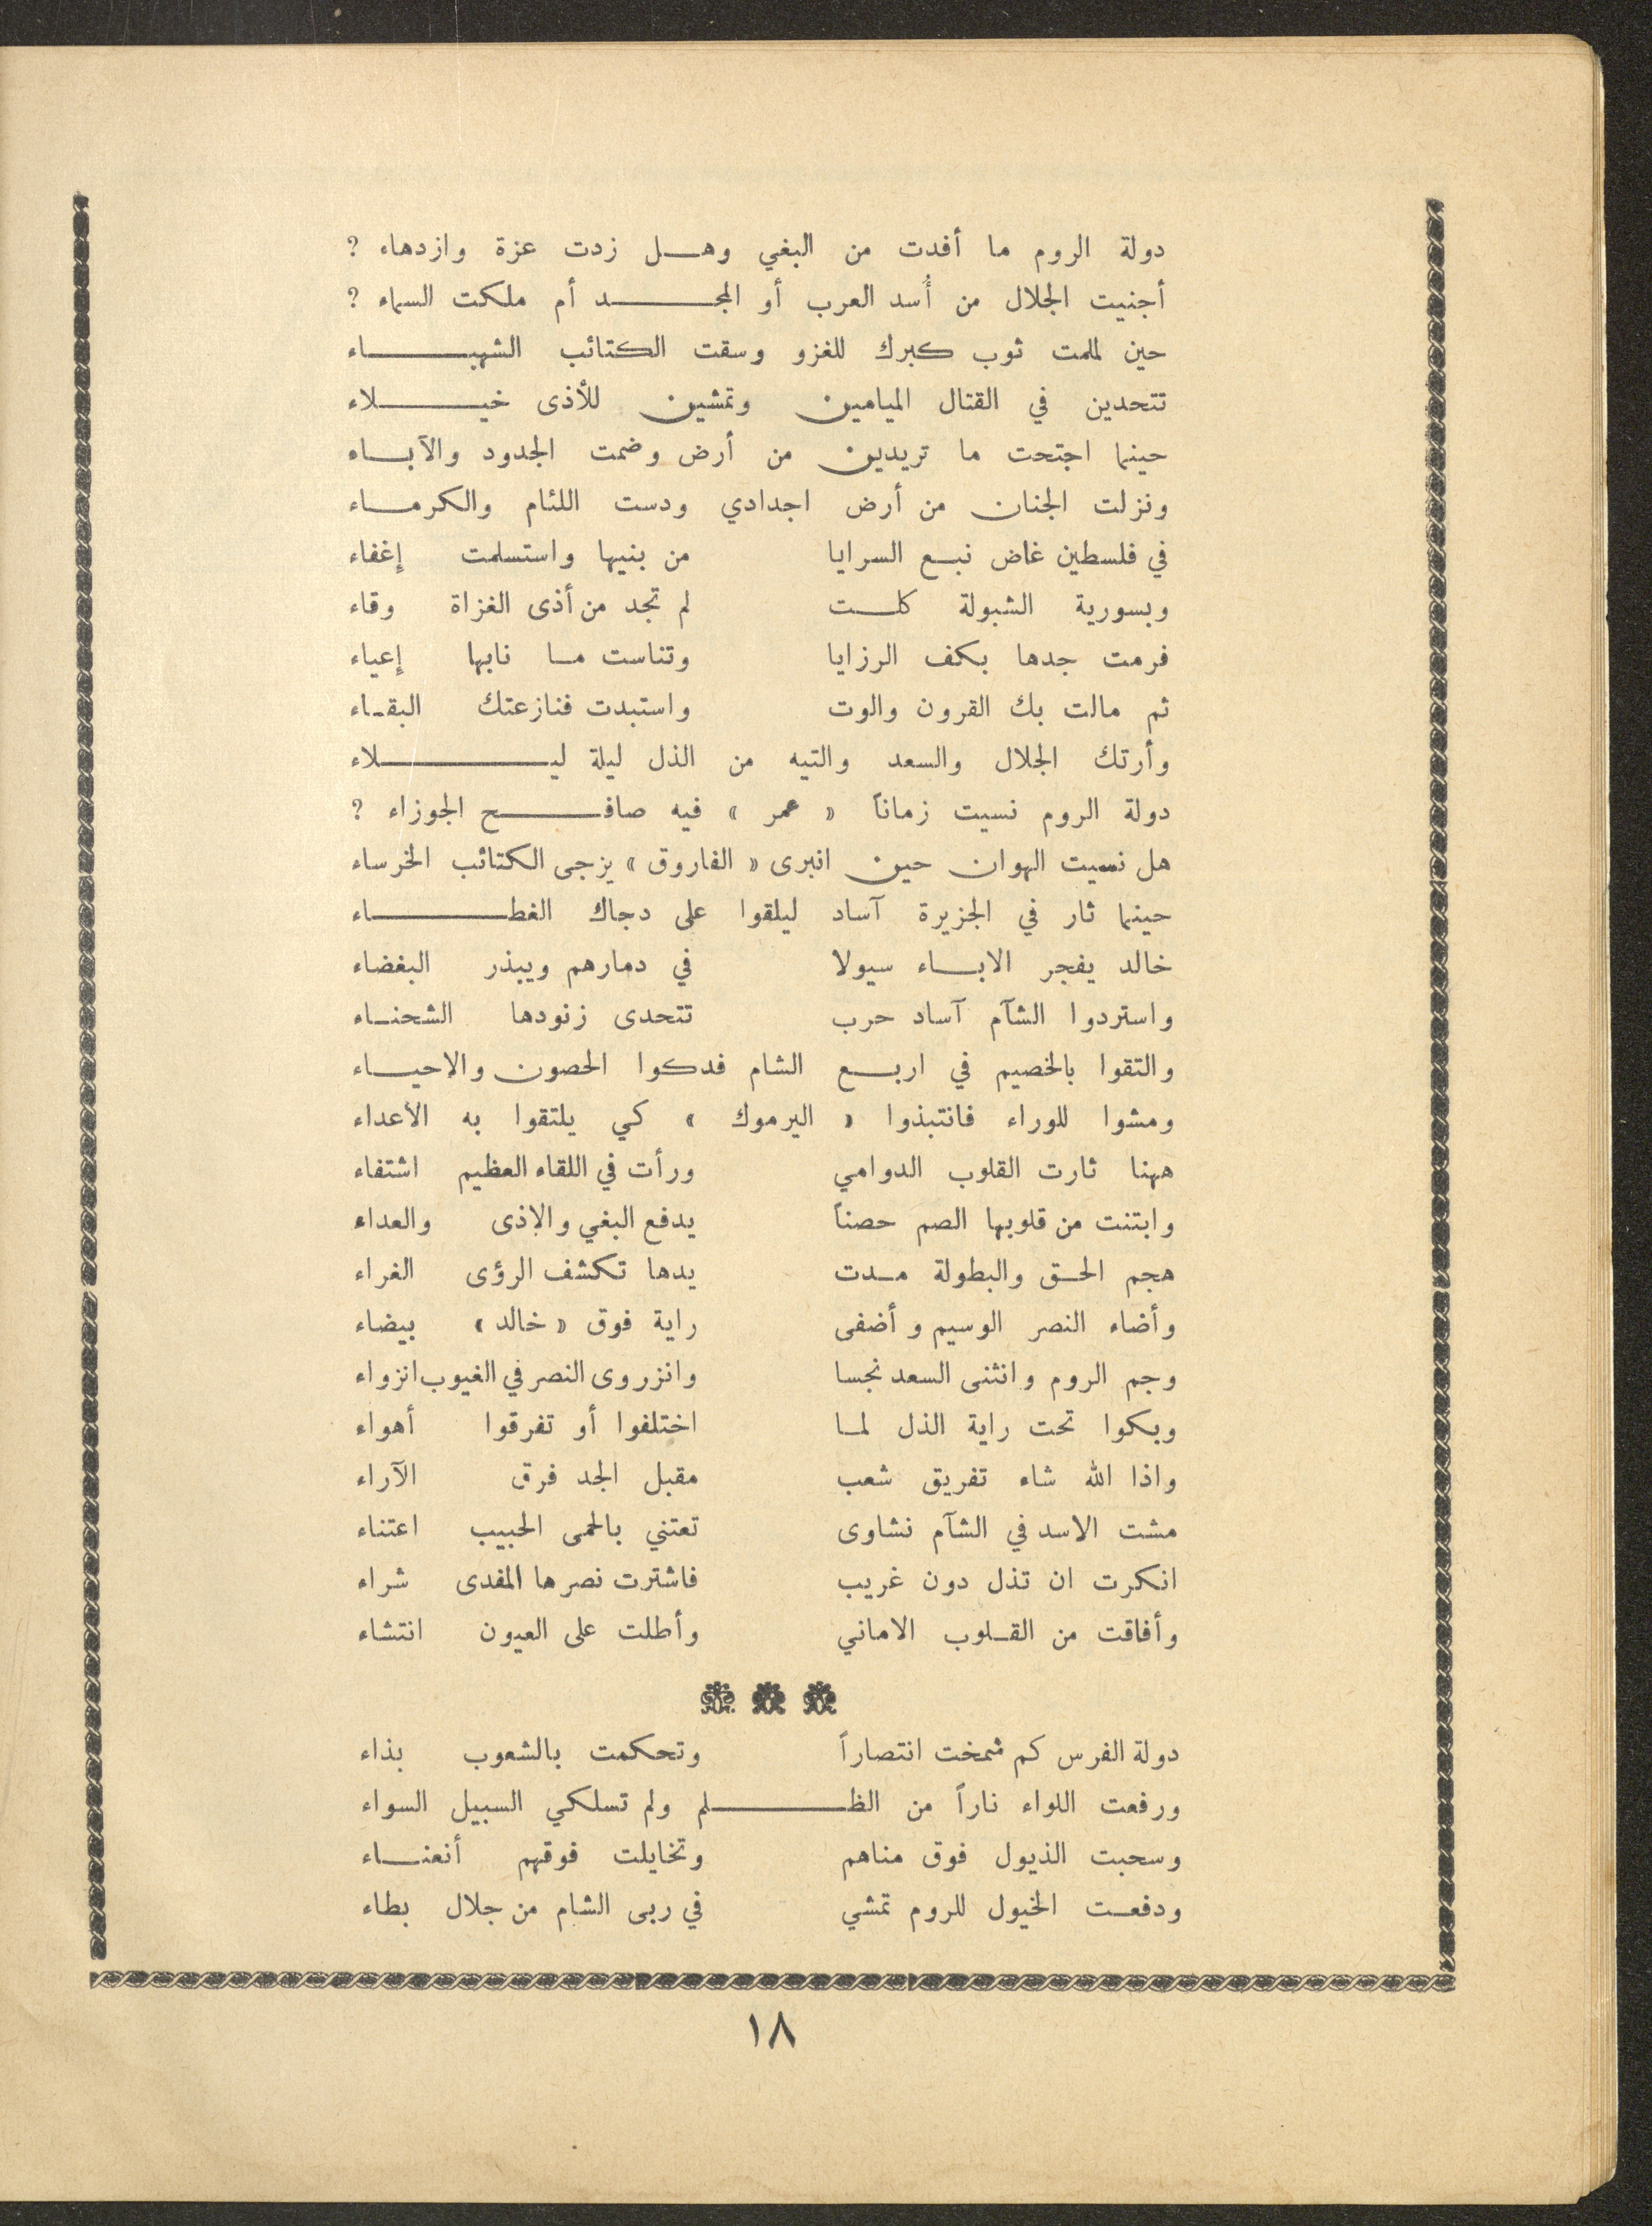 دولة الروم ما أفدت من البغي وهل زدت عزة وازدهاء ؟
أجنيت الجلال من أُسد العرب أو المجد أم ملكت السماء ؟
حين لملمت ثوب كبرك للغزو وسقت الكتائب الشهباء
تتحدين في القتال الميامين وتمشين للأذى خيلاء
حينما اجتحت ما تريدين من أرض وضمت الجدود والآباء
ونزلت الجنان من أرض اجدادي ودست اللئام والكرماء
في فلسطين غاض نبع السرايا من بنيها واستسلمت إغفاء
وبسورية الشبولة كلت لم تجد من أذى الغزاة وقاء
فرمت جدها بكف الرزايا وتناست ما نابها إعياء
ثم مالت بك القرون والوت واستبدت فنازعتك البقاء
وأرتك الجلال والسعد والتيه من الذل ليلة ليلاء
دولة الروم نسيت زماناً « عمر » فيه صافح الجوزاء ؟
هل نسيت الهوان حين انبرى « الفاروق » يزجى الكتائب الخرساء
حينما ثار في الجزيرة آساد ليلقوا على دجاك الغطاء
خالد يفجر الاباء سيولا في دمارهم ويبذر البغضاء
واستردوا الشآم آساد حرب تتحدى زنودها الشحناء
والتقوا بالخصيم في اربع الشام فدكوا الحصون والاحياء
ومشوا للوراء فانتبذوا « اليرموك » كي يلتقوا به الأعداء
ههنا ثارت القلوب الدوامي ورأت في اللقاء العظيم اشتفاء
وابتنت من قلوبها الصم حصناً يدفع البغي والاذى والعداء
هجم الحق والبطولة مدت يدها تكشف الرؤى الغراء
وأضاء النصر الوسيم وأضفى راية فوق « خالد » بيضاء
وجم الروم وانثنى السعد نجسا وانزروى النصر في الغيوب انزواء
وبكوا تحت راية الذل لما اختلفوا أو تفرقوا أهواء
واذا الله شاء تفريق شعب مقبل الجد فرق الآراء
مشت الاسد في الشآم نشاوى تعتني بالحمى الحبيب اعتناء
انكرت ان تذل دون غريب فاشترت نصرها المفدى شراء
وأفاقت من القلوب الاماني وأطلت على العيون انتشاء
دولة الفرس كم شمخت انتصاراً وتحكمت بالشعوب بذاء
ورفعت اللواء ناراً من الظلم ولم تسلكي السبيل السواء
وسحبت الذيول فوق مناهم وتخايلت فوقهم أنعناء
ودفعت الخيول للروم تمشي في ربى الشام من جلال بطاء
١٨